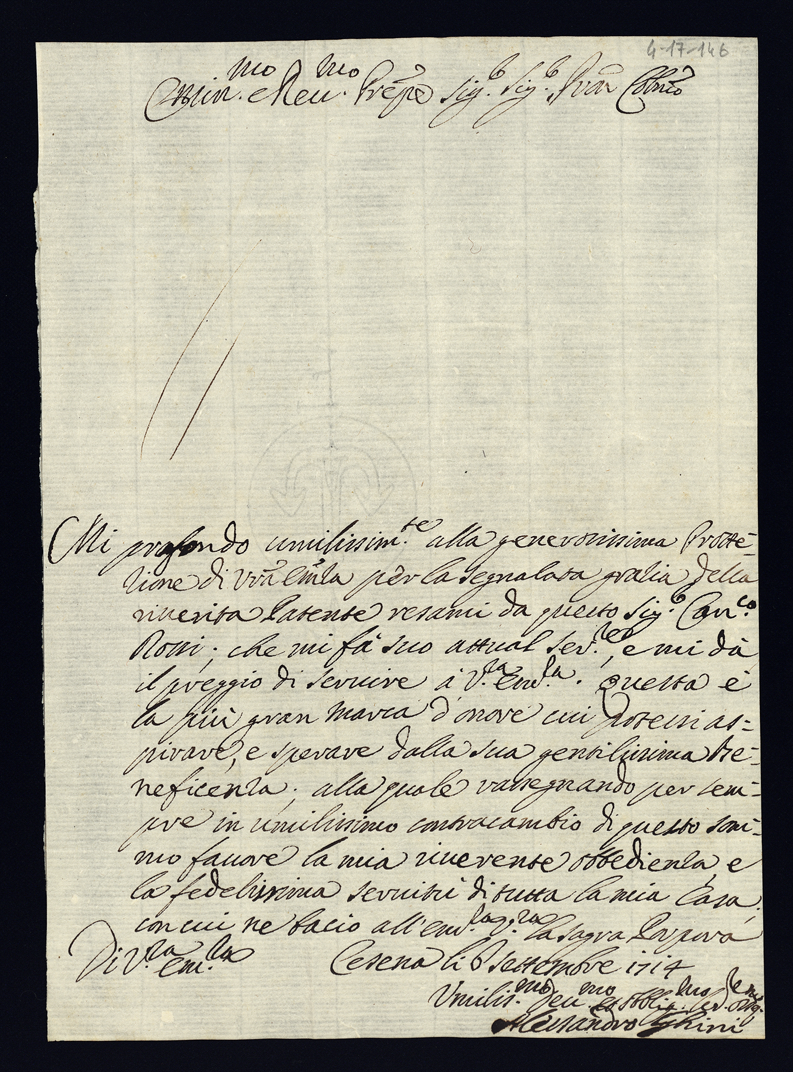 4-17-146
Emin.mo e Reu.mo Prēpe Sig.r Sig.r Prōn Colmō
Mi profondo umilissim.te alla generosissima Protte=
zione di Vrā Emza per la segnalata grazia della
riuerita Patente resami da questo Sig.r Can.co
Rossi; che mi fà suo attual ser.re, e mi dà
il preggio di seruire à V.ra Em.za. Questa è
la più gran marca d'onore cui potessi as=
pirare, e sperare dalla sua gentilissima Be=
neficenza; alla quale rassegnando per sem=
pre in umilissimo contracambio di questo som=
mo fauore la mia riuerente obbedienza, e
la fedelissima seruitù di tutta la mia Casa,
con cui ne bacio all'Em.za V.ra la sagra Porpora
Di V.ra Em.za Cesena li 6 Settembre 1714
Vmilis.mo Deu.mo et Obblig.mo Ser.re
Alessandro Ghini